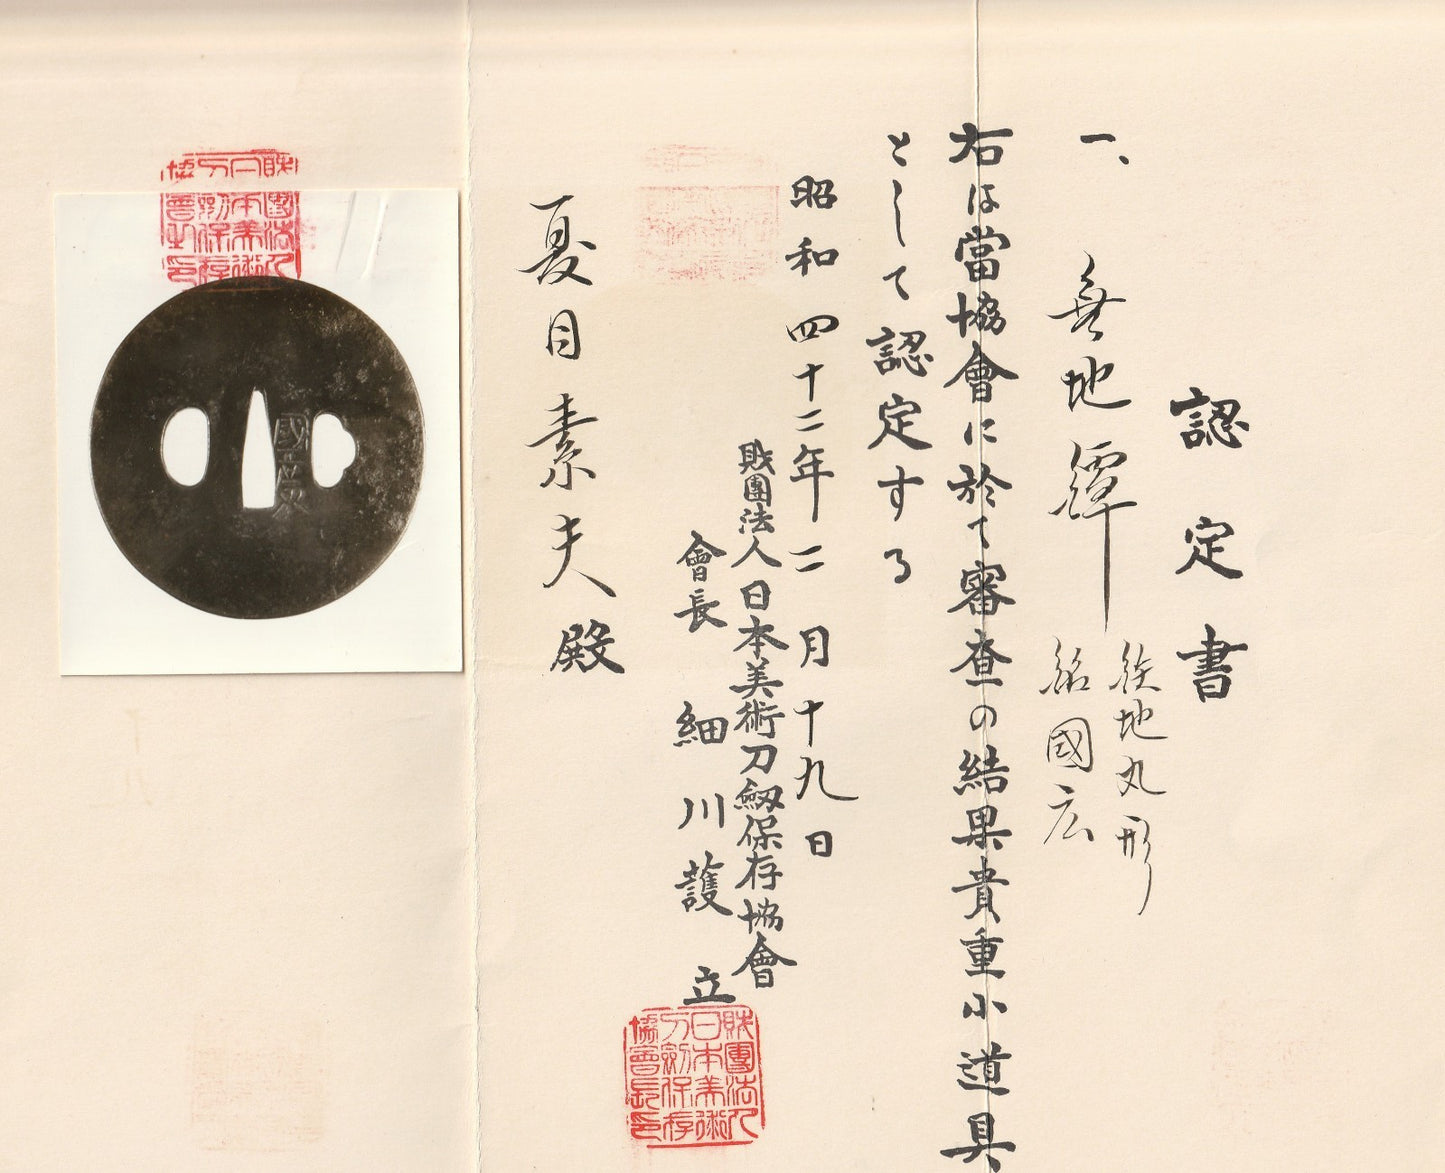 認定書
一、無地鐔
鉄地丸形
銘國広
右は當協會に於て審査の結果貴重小道具
として認定する
昭和四十二年二月十九日
財團法人日本美術刀劔保存協會
會長 細川護立
夏目素夫殿
財團法人日本美術刀劔保存協會長印
財團法人日本美術刀劔保存協會之印
國廣